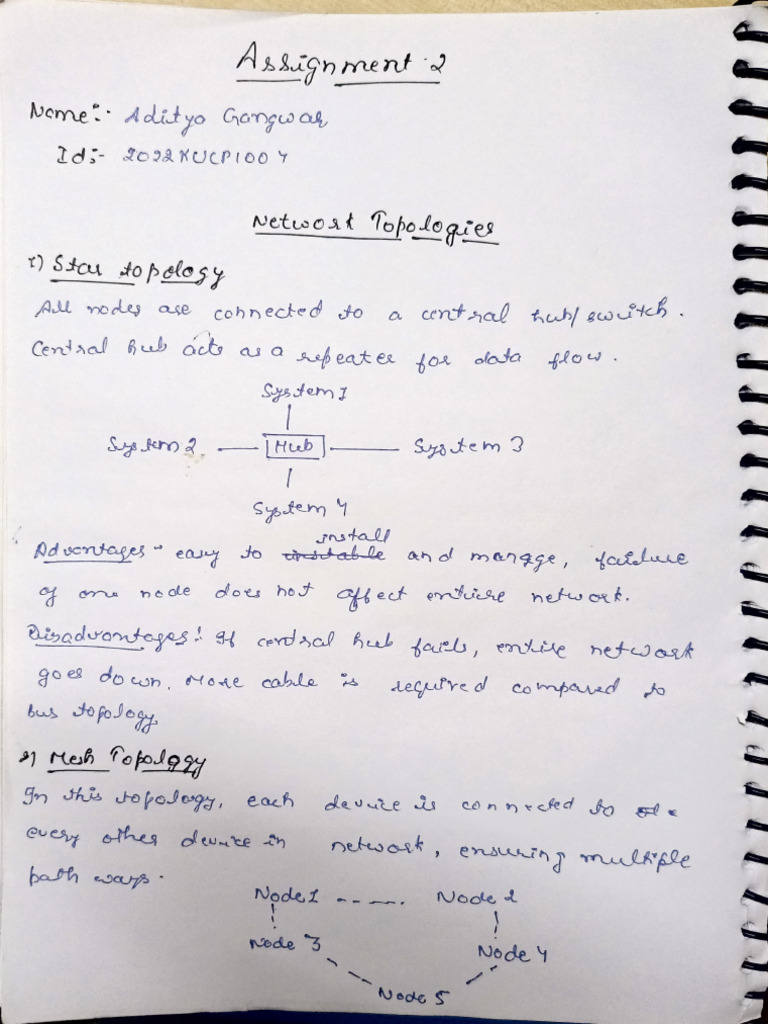 Assignment 2
Name:- Aditya Gangwar
Id:- 2022KUCP1004
Network Topologies
1) Star topology
All nodes are connected to a central hub/switch.
Central hub acts as a repeater for data flow.
System 1
System 2 — Hub — System 3
System 4
install
Advantages - easy to instable and manage, failure
of one node does not affect entire network.
Disadvantages: If central hub fails, entire network
goes down. More cable is required compared to
bus topology.
2) Mesh Topology
In this topology, each device is connected to
every other device in network, ensuring multiple
path ways.
Node 1 ----- Node 2
Node 3 Node 4
Node 5